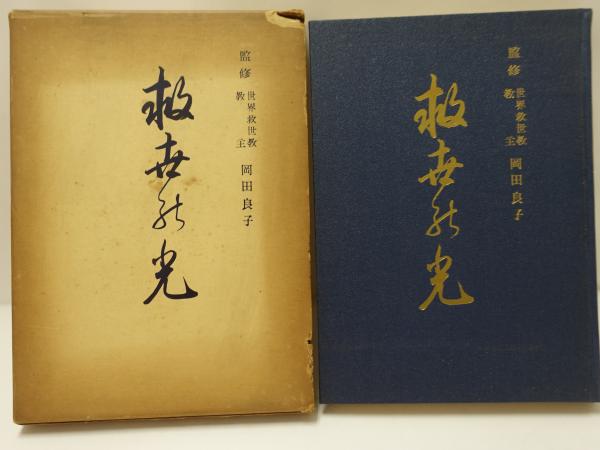 監修 世界救世教 教主 岡田良子
救世能光
監修 世界救世教 教主 岡田良子
救世能光